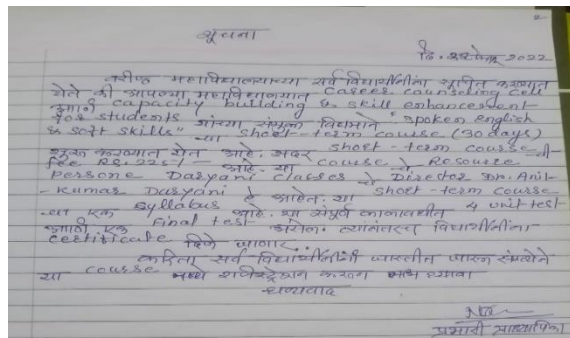 सूचना
2022
महाविद्यालयाच्या सर्व विद्यार्थीनींना सूचित करण्यात
येते की आपल्या महाविद्यालयात Career counseling cell
आणि capacity building & skill enhancement
for students यांच्या संयुक्त विद्यमाने "spoken english
& soft skills" या short-term course (30 days)
सुरू करण्यात येत आहे. सदर short-term course ची
fee RS. 225/- आहे. या course चे Resource
persone Daryani classes चे Director Anil-
-kumar Daryani हे आहेत. या short-term course
चा एक syllabus आहे. या संपूर्ण कालावधीत 4 unit test
आणि एक final test असेल. त्यानंतरच विद्यार्थीनींना
certificate दिले जाणार.
करिता सर्व विद्यार्थीनींनी जास्तीत जास्त संख्येने
या course मध्ये रजिस्ट्रेशन करून भाग घ्यावा
धन्यवाद
प्रभारी प्राध्यापिका